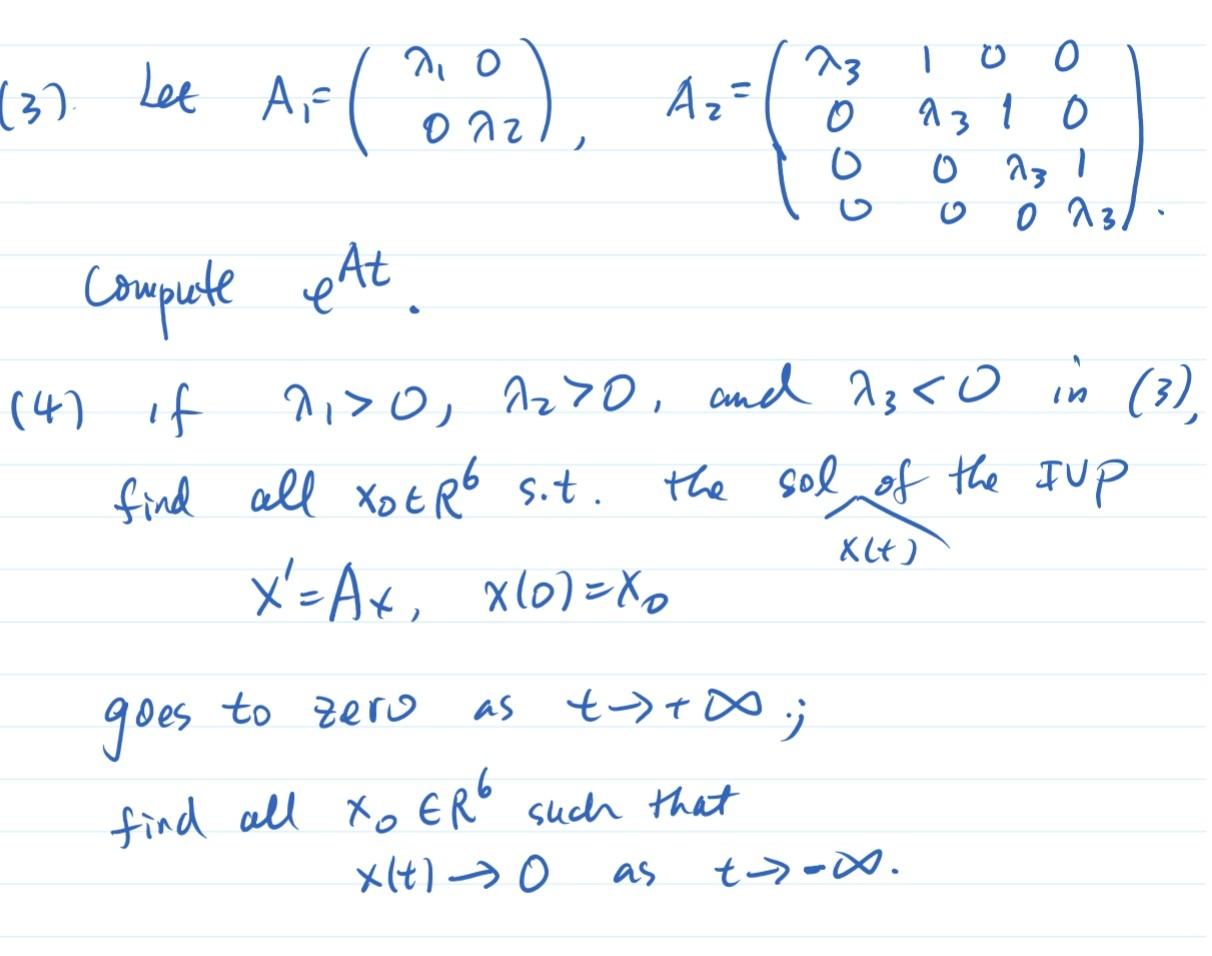 (3). Let A₁ = ( λ₁ 0 ; 0 λ₂ ), A₂ = ( λ₃ 1 0 0 ; 0 λ₃ 1 0 ; 0 0 λ₃ 1 ; 0 0 0 λ₃ ).
Compute e^{At}.
(4) if λ₁>0, λ₂>0, and λ₃<0 in (3),
find all x₀∈R⁶ s.t. the sol of the IVP
x(t)
x'=Ax, x(0)=x₀
goes to zero as t→+∞;
find all x₀∈R⁶ such that
x(t)→0 as t→-∞.